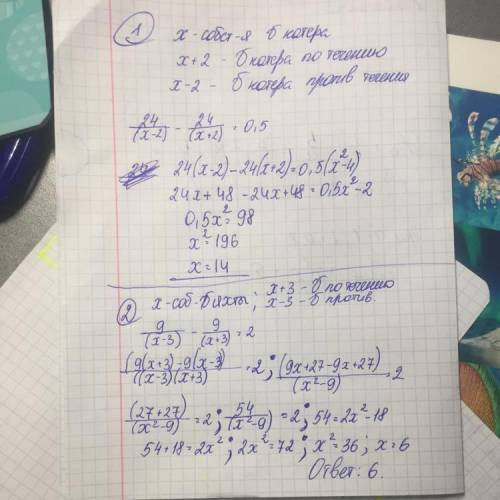 1 x-собст-я б катера
x+2 - б катера по течению
x-2 - б катера против течения
24/(x-2) - 24/(x+2) = 0,5
24(x-2)-24(x+2)=0,5(x²-4)
24x+48-24x+48=0,5x²-2
0,5x²=98
x²=196
x=14
2 x-соб-б яхты; x+3 - б по течению
x-3 - б против.
9/(x-3) - 9/(x+3) = 2
(9(x+3)-9(x-3)/((x-3)(x+3) =2; (9x+27-9x+27)/(x²-9) = 2
(27+27)/(x²-9) =2; 54/(x²-9) =2; 54=2x²-18
54+18=2x²; 2x²=72; x²=36; x=6
Ответ: 6.